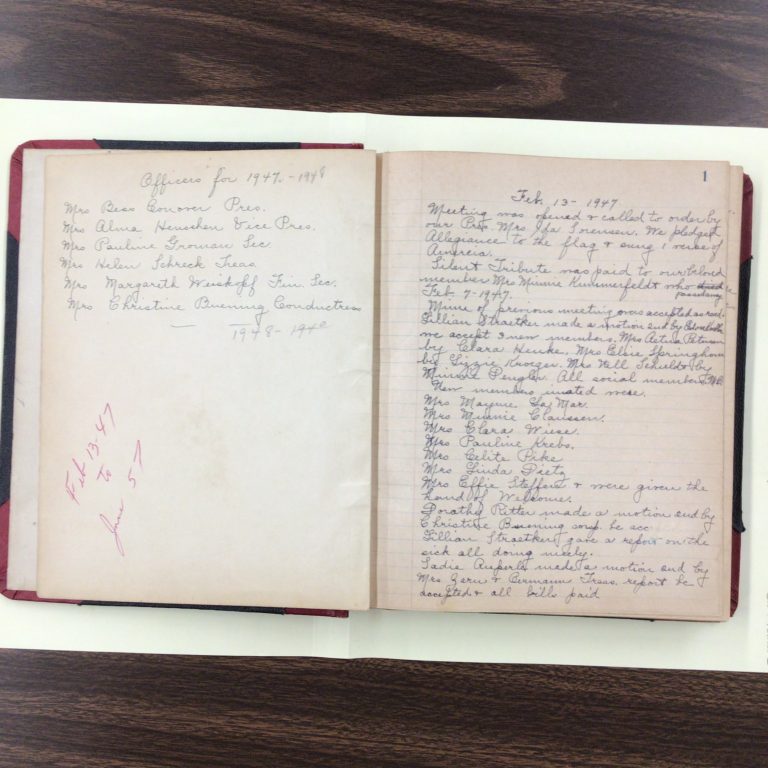 Officers for 1947-1948
Mrs Bess Conover Pres.
Mrs Alma Hensshen Vice Pres.
Mrs Pauline Groman Sec
Mrs Helen Schreck Treas
Mrs Margareth Weiskopf Fin. Sec.
Mrs Christine Buening Conductress
1948-194
Feb 13-47
to
June 57
1
Feb. 13-1947
Meeting was opened & called to order by
our Pres. Mrs. Ida Sorensen. We pledged
Allegiance to the flag & sung 1 verse of
America.
Silent Tribute was paid to our beloved
member Mrs Minnie Kummerfeldt who died
passed away
Feb. 7-1947.
Minue of previous meeting was accepted as read.
Lillian Straetker made a motion and by
we accept 3 new members. Mrs Petersen
by Clara Henke. Mrs Elsie Springhorn
by Lizzie Kroeger. Mrs Nell Schieldt by
Minnie Pengler. All social members
New members inated were.
Mrs Maynie La Mar.
Mrs Minnie Claussen.
Mrs Clara Wiese.
Mrs Pauline Krebs.
Mrs Celite Pike
Mrs Linda Dietz
Mrs Effie Steffens & were given the
hand of Welcome.
Dorothy Ritter made a motion and by
Christine Buening be acc
Lillian Straetker gave a report on the
sick all doing nicely.
Sadie made a motion and by
Mrs & Bermann Treas. report be
accepted & all bills paid